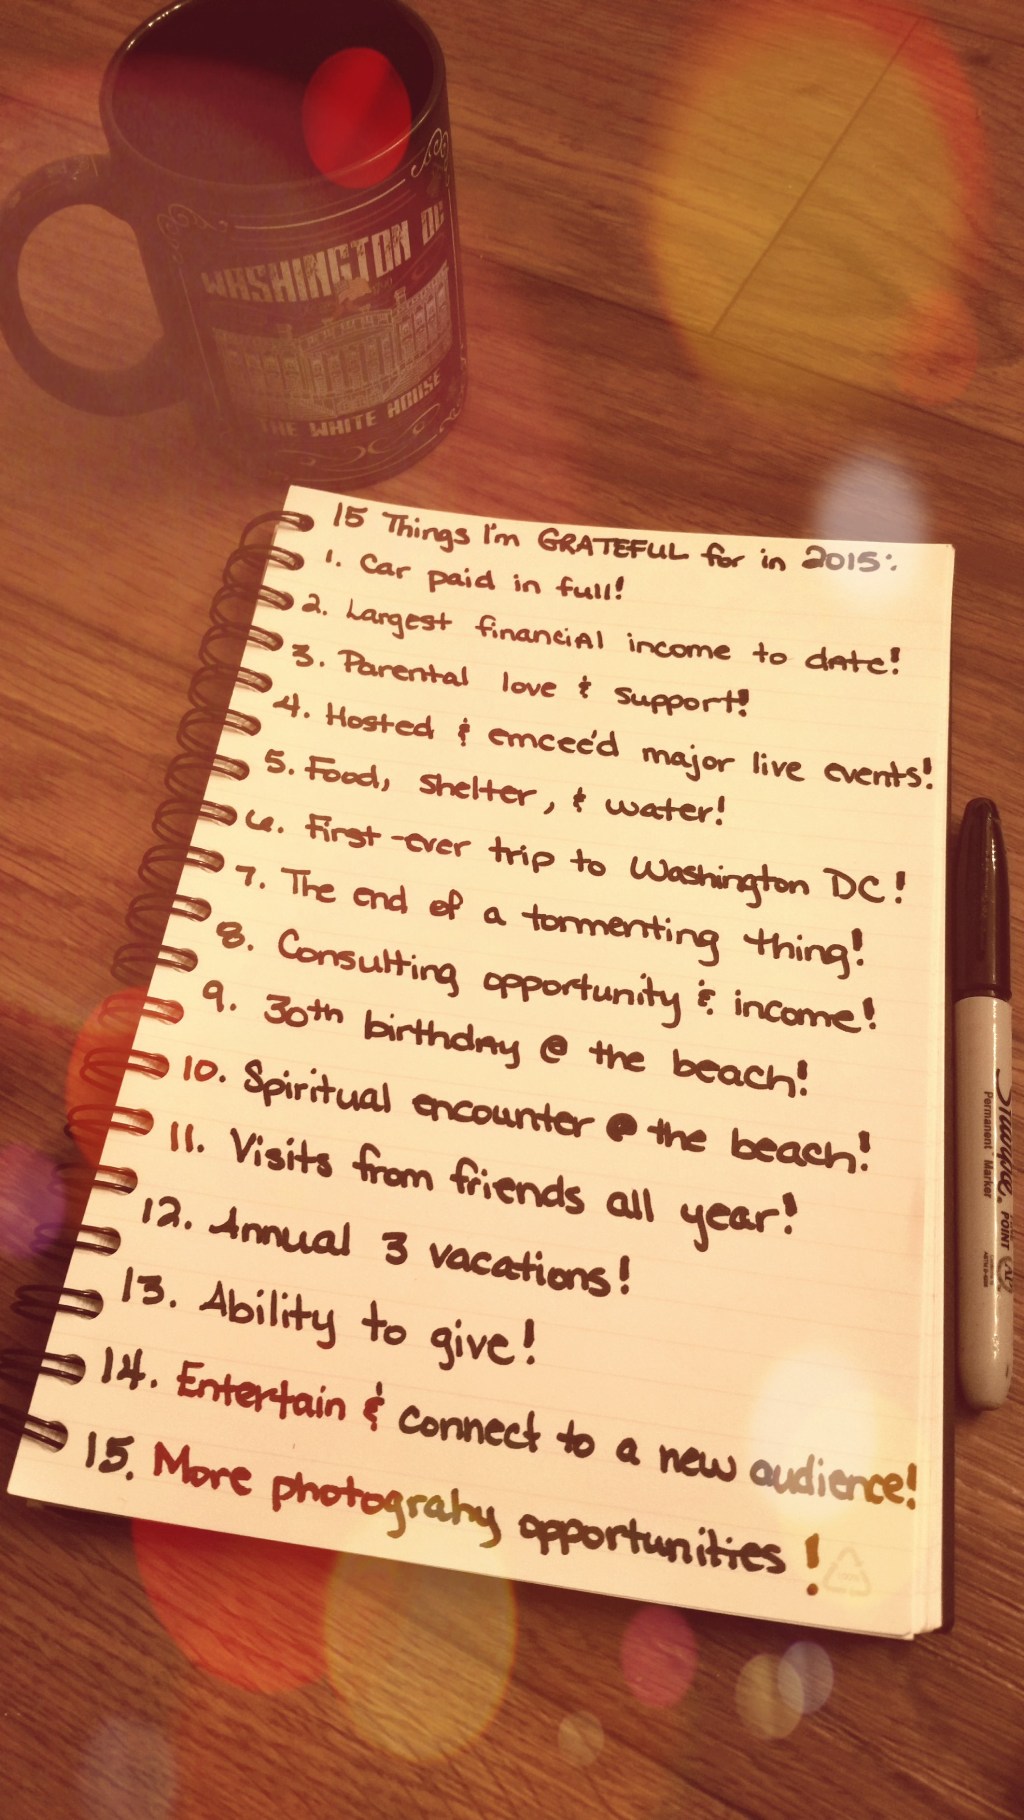 WASHINGTON DC
THE WHITE HOUSE
15 Things I'm GRATEFUL for in 2015:
1. Car paid in full!
2. Largest financial income to date!
3. Parental love & support!
4. Hosted & emcee'd major live events!
5. Food, shelter, & water!
6. First-ever trip to Washington DC!
7. The end of a tormenting thing!
8. Consulting opportunity & income!
9. 30th birthday @ the beach!
10. Spiritual encounter @ the beach!
11. Visits from friends all year!
12. Annual 3 vacations!
13. Ability to give!
14. Entertain & connect to a new audience!
15. More photograhy opportunities!
Sharpie
Permanent Marker
POINT